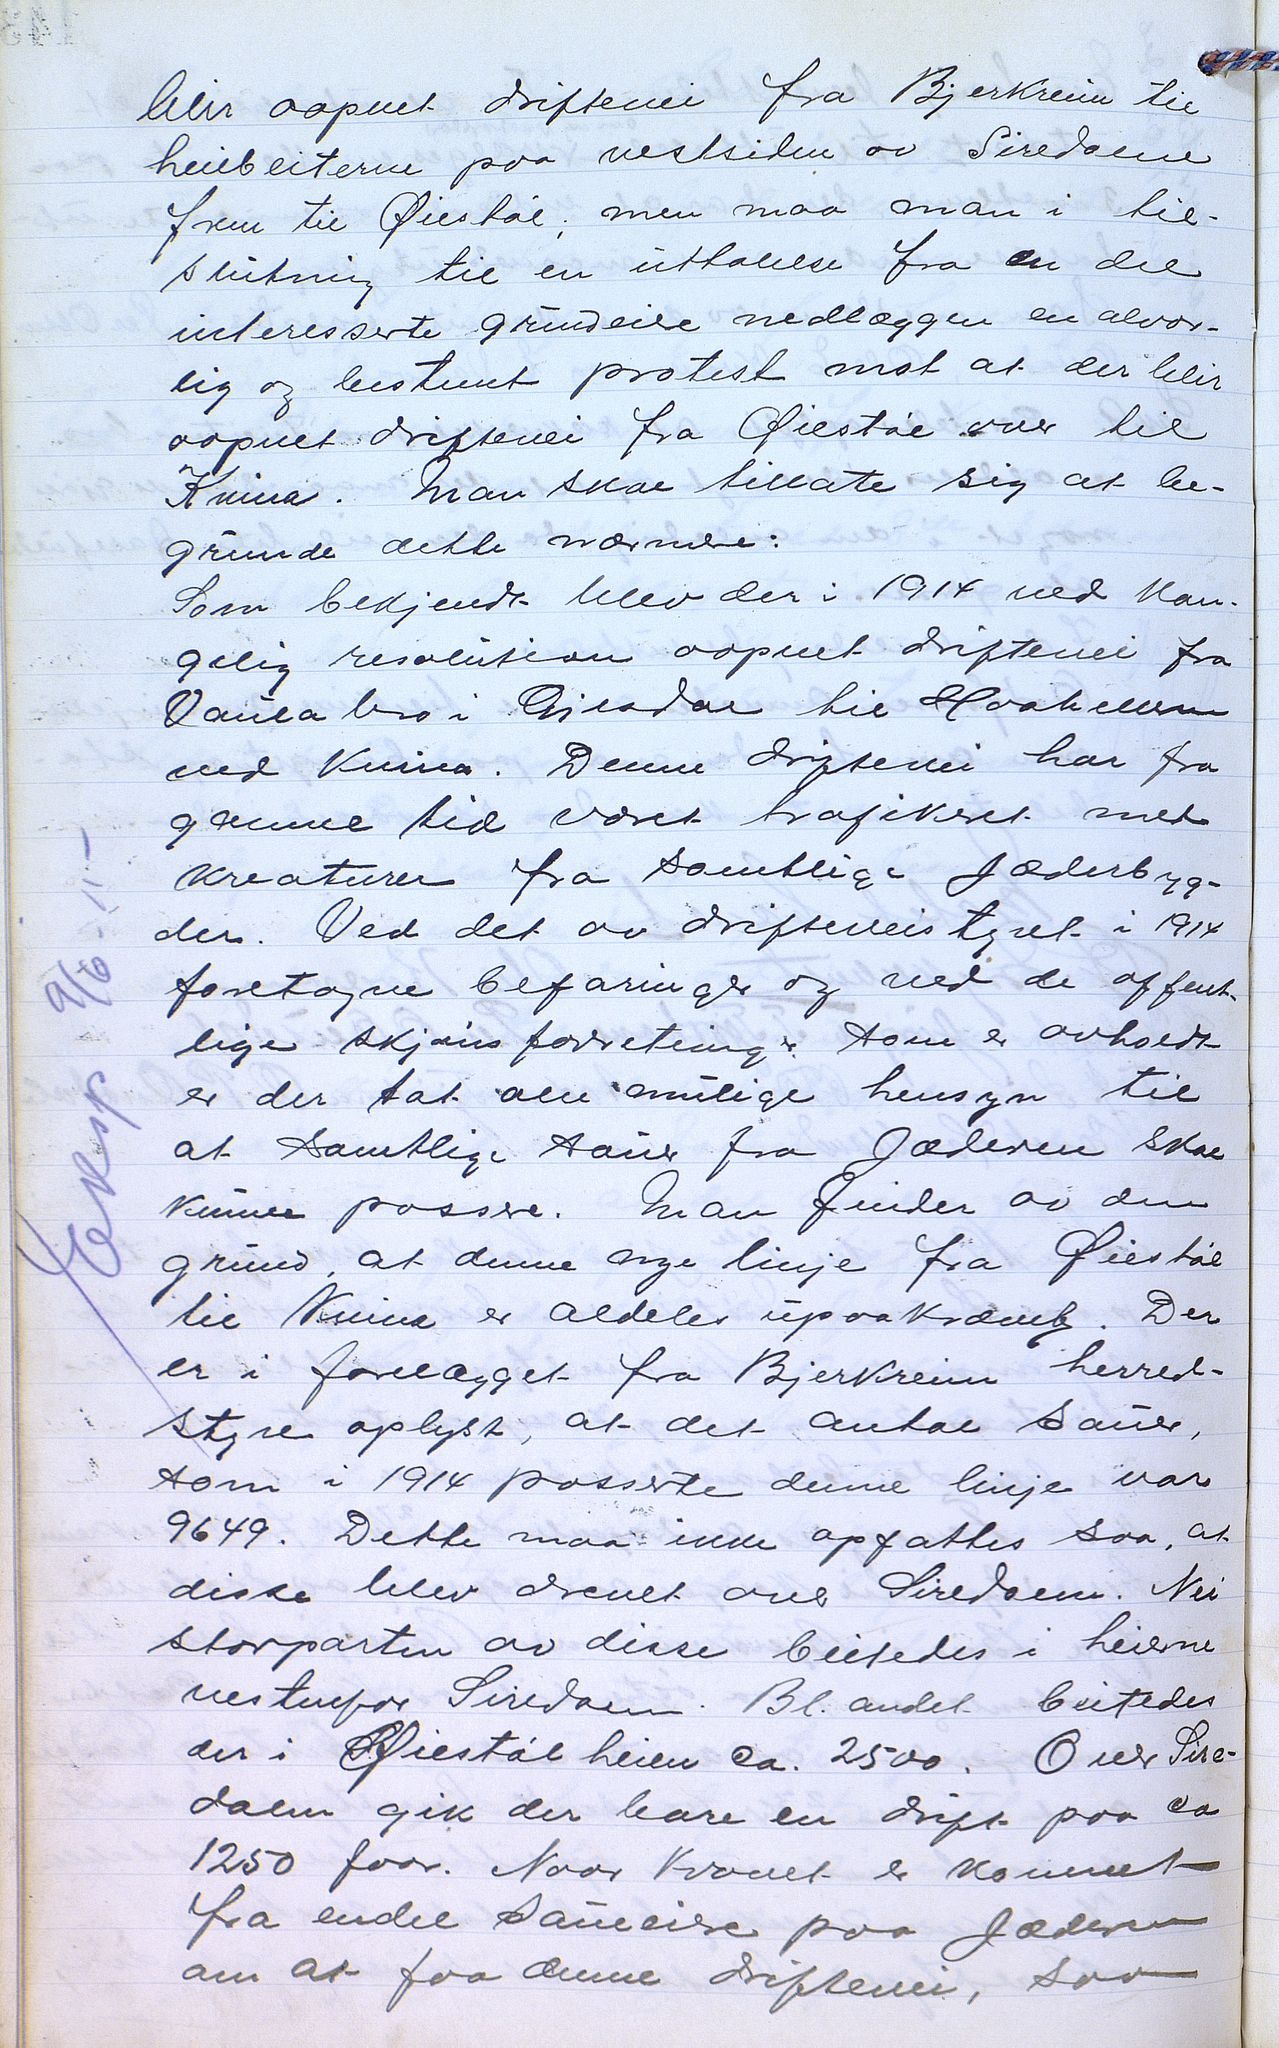 blir oapnet driftevei fra Bjerkreim til
heiebeiterne paa vestsiden av Siredalene
frem til Øiestøl, men maa man i til-
slutning til en uttalelse fra en del
interesserte grundeiere nedlæggen en alvor-
lig og bestemt protest mot at der blir
oapnet driftevei fra Øiestøl over til
Kvina. Man skal tillate sig at be-
grunde dette nærmere:
Som bekjendt blev der i 1914 ved Kon-
gelig resolution oapnet driftevei fra
Vaula bro i Gjesdal til Haahelleren
ved Kvina. Denne driftevei har fra
gamme tid været trafikeret med
kreaturer fra samtlige Jæderbyg-
der. Ved det av drifteveistyret i 1914
foretagne befaringer og ved de offent-
lige skjønsforretninger som er avholdt
er der tat alle mulige hensyn til
at samtlige sauer fra Jæderen skal
kunne passere. Man finder av den
grund, at denne nye linje fra Øiestøl
til Kvina er aldeles upaakrævet. Der
er i forelægget fra Bjerkreim herred-
styre oplyst, at det antal sauer,
som i 1914 passerte denne linje var
9649. Dette maa ikke opfattes saa, at
disse blev drevet over Siredalen. Nei
storparten av disse beitedes i heierne
vestenfor Siredalen. Bl. andet beitedes
der i Øiestøl heien ca. 2500. Over Sire-
dalen gik der bare en drift paa ca
1250 faar. Naar kravet er kommet
fra endel saueeiere paa Jæderen
om at faa denne driftevei, saa
Eksp 9/6-15-
143